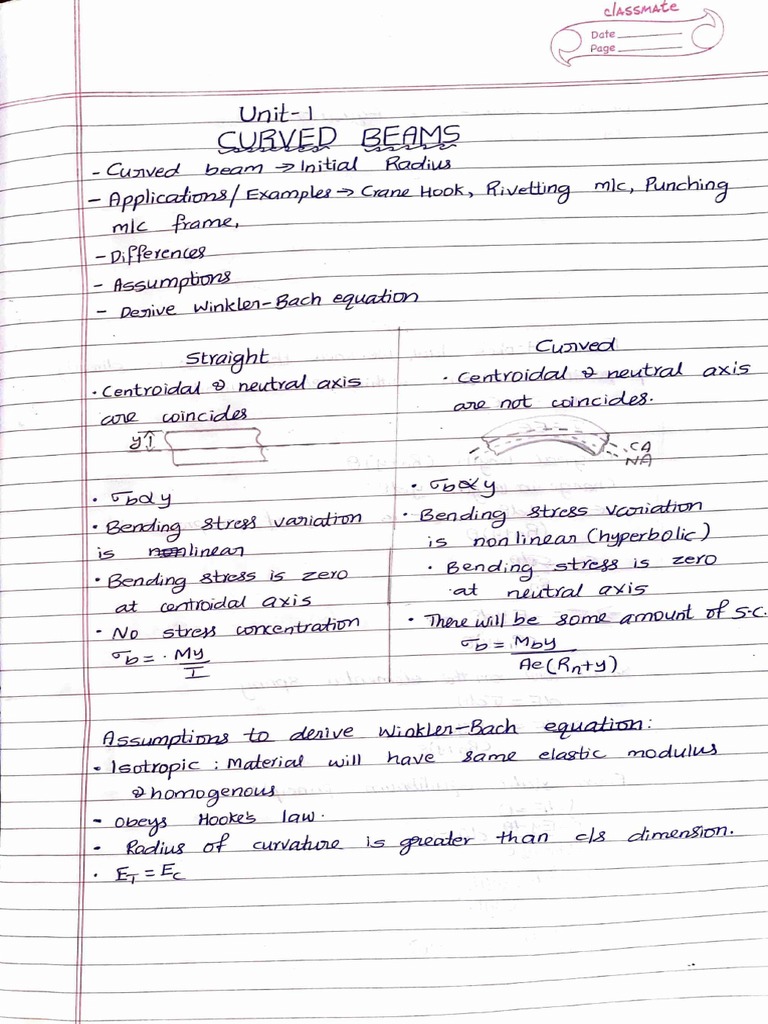 classmate
Date
Page
Unit-1
CURVED BEAMS
- Curved beam → Initial Radius
- Applications/Examples → Crane Hook, Rivetting m/c, Punching
m/c frame,
- Differences
- Assumptions
- Derive Winkler-Bach equation
Straight
• Centroidal & neutral axis
are coincides
y
• σb α y
• Bending stress variation
is linear
• Bending stress is zero
at centroidal axis
• No stress concentration
σb = My/I
Curved
• Centroidal & neutral axis
are not coincides.
CA
NA
• σb α̸ y
• Bending stress variation
is non linear (hyperbolic)
• Bending stress is zero
at neutral axis
• There will be some amount of S.C.
σb = Mby/Ae(Rn+y)
Assumptions to derive Winkler-Bach equation:
• Isotropic : Material will have same elastic modulus
& homogenous
- obeys Hooke's law.
• Radius of curvature is greater than c/s dimension.
• ET = EC